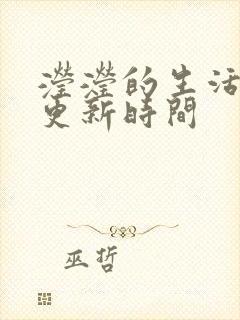 瀅瀅的生活
更新時間
巫哲